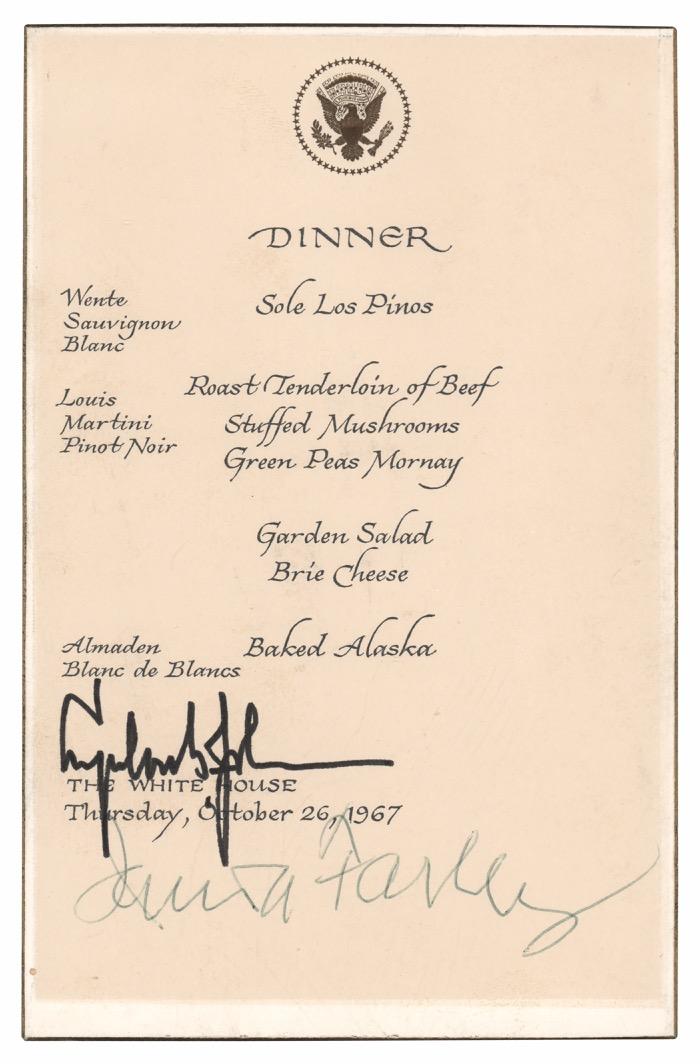 DINNER
Wente
Sauvignon
Blanc
Sole Los Pinos
Louis
Martini
Pinot Noir
Roast Tenderloin of Beef
Stuffed Mushrooms
Green Peas Mornay
Garden Salad
Brie Cheese
Almaden
Blanc de Blancs
Baked Alaska
THE WHITE HOUSE
Thursday, October 26, 1967
Farley